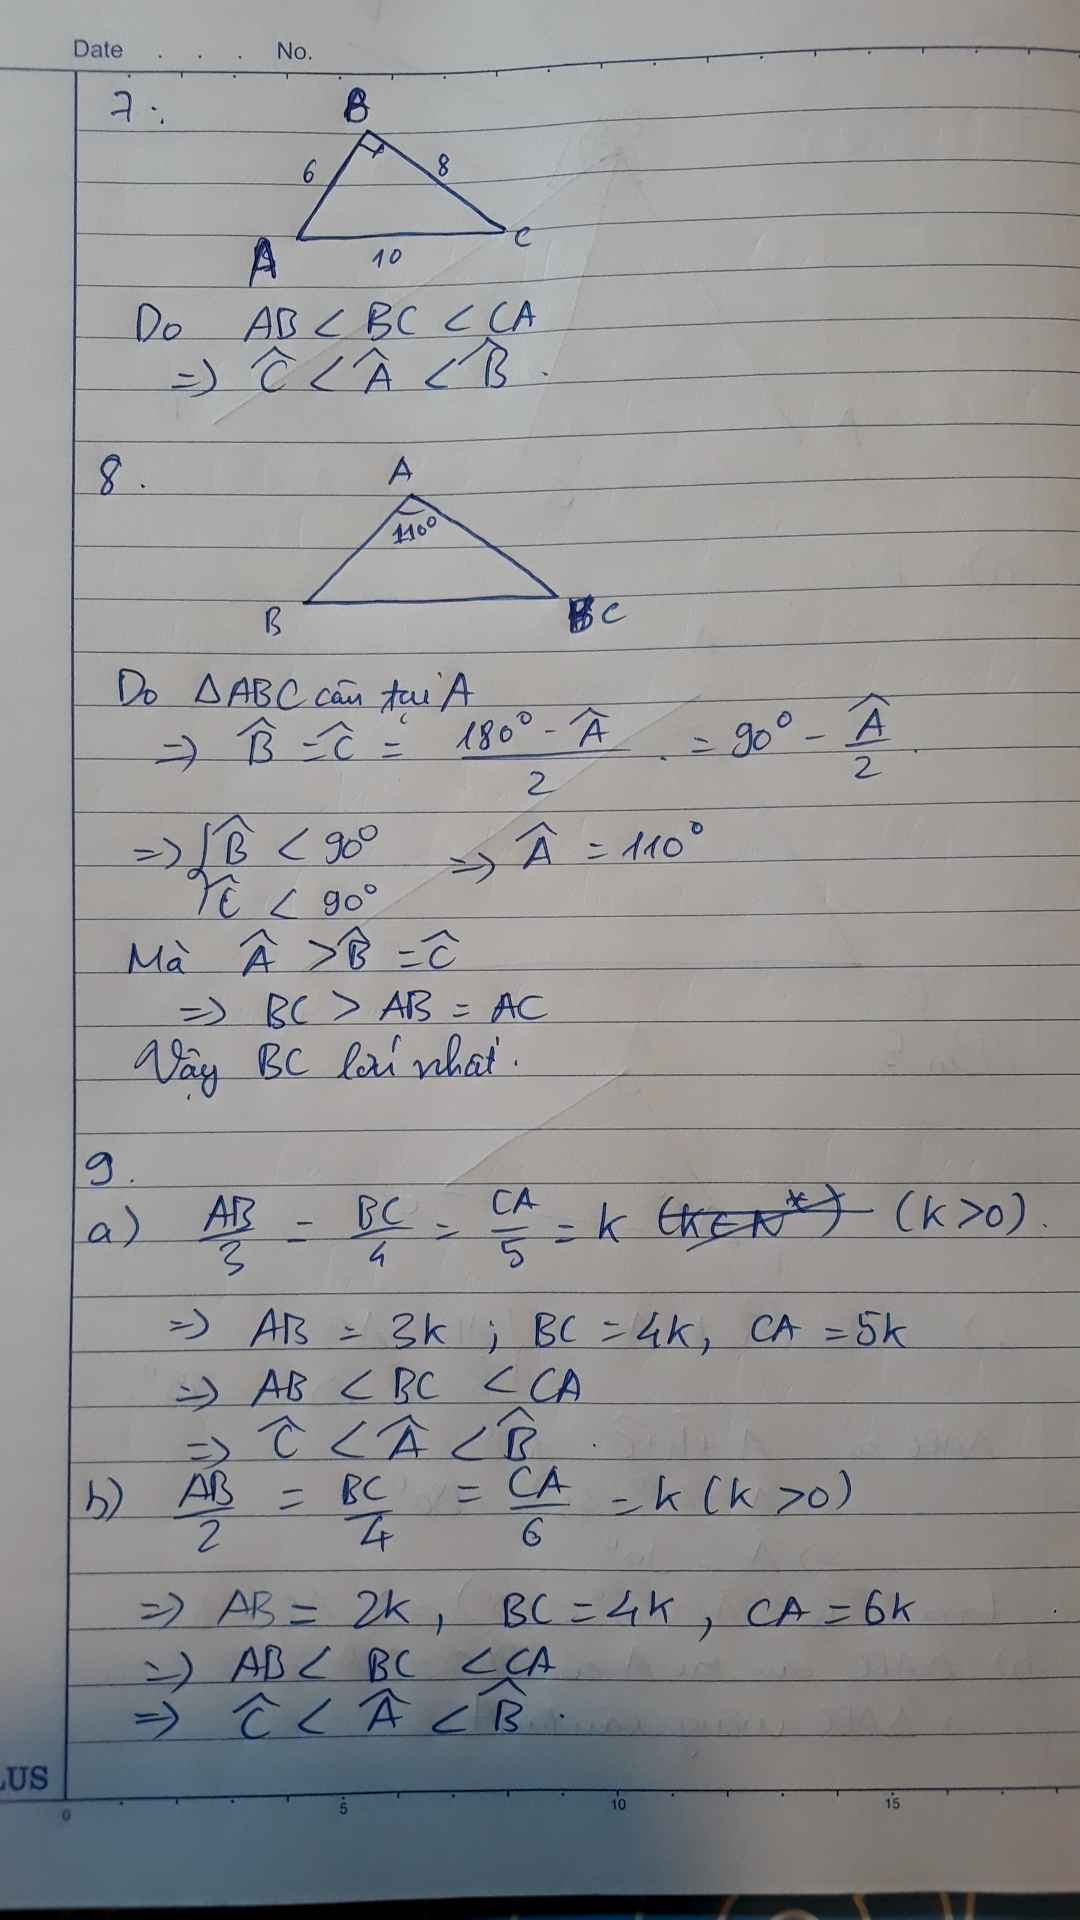 Date . . . No.
7.
B
6 8
A 10 C
Do AB < BC < CA
=> Ĉ < Â < B̂ .
8.
A
110°
B C
Do △ABC cân tại A
=> B̂ = Ĉ = (180° - Â)/2 . = 90° - Â/2 .
=> { B̂ < 90° => Â = 110°
Ĉ < 90°
Mà Â > B̂ = Ĉ
=> BC > AB = AC
Vậy BC lớn nhất.
9.
a) AB/3 = BC/4 = CA/5 = k (k ∈ N*) (k > 0).
=> AB = 3k ; BC = 4k, CA = 5k
=> AB < BC < CA
=> Ĉ < Â < B̂ .
b) AB/2 = BC/4 = CA/6 = k (k > 0)
=> AB = 2k, BC = 4k, CA = 6k
=> AB < BC < CA
=> Ĉ < Â < B̂ .
LUS
0 5 10 15